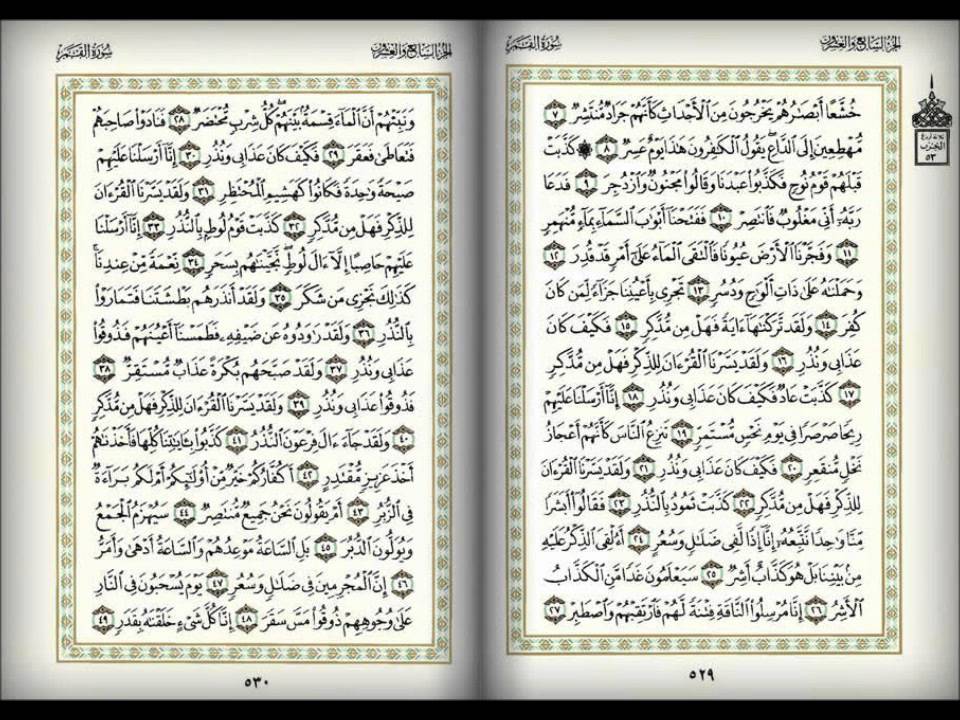 الجزء السابع والعشرون
سورة القمر
ثلاثة أرباع
الحزب
٥٣
خُشَّعًا أَبْصَٰرُهُمْ يَخْرُجُونَ مِنَ ٱلْأَجْدَاثِ كَأَنَّهُمْ جَرَادٌ مُّنتَشِرٌ ٧
مُّهْطِعِينَ إِلَى ٱلدَّاعِ يَقُولُ ٱلْكَٰفِرُونَ هَٰذَا يَوْمٌ عَسِرٌ ٨ ۞ كَذَّبَتْ
قَبْلَهُمْ قَوْمُ نُوحٍ فَكَذَّبُوا۟ عَبْدَنَا وَقَالُوا۟ مَجْنُونٌ وَٱزْدُجِرَ ٩ فَدَعَا
رَبَّهُۥٓ أَنِّى مَغْلُوبٌ فَٱنتَصِرْ ١٠ فَفَتَحْنَآ أَبْوَٰبَ ٱلسَّمَآءِ بِمَآءٍ مُّنْهَمِرٍ
١١ وَفَجَّرْنَا ٱلْأَرْضَ عُيُونًا فَٱلْتَقَى ٱلْمَآءُ عَلَىٰٓ أَمْرٍ قَدْ قُدِرَ ١٢
وَحَمَلْنَٰهُ عَلَىٰ ذَاتِ أَلْوَٰحٍ وَدُسُرٍ ١٣ تَجْرِى بِأَعْيُنِنَا جَزَآءً لِّمَن كَانَ
كُفِرَ ١٤ وَلَقَد تَّرَكْنَٰهَآ ءَايَةً فَهَلْ مِن مُّدَّكِرٍ ١٥ فَكَيْفَ كَانَ
عَذَابِى وَنُذُرِ ١٦ وَلَقَدْ يَسَّرْنَا ٱلْقُرْءَانَ لِلذِّكْرِ فَهَلْ مِن مُّدَّكِرٍ
١٧ كَذَّبَتْ عَادٌ فَكَيْفَ كَانَ عَذَابِى وَنُذُرِ ١٨ إِنَّآ أَرْسَلْنَا عَلَيْهِمْ
رِيحًا صَرْصَرًا فِى يَوْمِ نَحْسٍ مُّسْتَمِرٍّ ١٩ تَنزِعُ ٱلنَّاسَ كَأَنَّهُمْ أَعْجَازُ
نَخْلٍ مُّنقَعِرٍ ٢٠ فَكَيْفَ كَانَ عَذَابِى وَنُذُرِ ٢١ وَلَقَدْ يَسَّرْنَا ٱلْقُرْءَانَ
لِلذِّكْرِ فَهَلْ مِن مُّدَّكِرٍ ٢٢ كَذَّبَتْ ثَمُودُ بِٱلنُّذُرِ ٢٣ فَقَالُوٓا۟ أَبَشَرًا
مِّنَّا وَٰحِدًا نَّتَّبِعُهُۥٓ إِنَّآ إِذًا لَّفِى ضَلَٰلٍ وَسُعُرٍ ٢٤ أَءُلْقِىَ ٱلذِّكْرُ عَلَيْهِ
مِنۢ بَيْنِنَا بَلْ هُوَ كَذَّابٌ أَشِرٌ ٢٥ سَيَعْلَمُونَ غَدًا مَّنِ ٱلْكَذَّابُ
ٱلْأَشِرُ ٢٦ إِنَّا مُرْسِلُوا۟ ٱلنَّاقَةِ فِتْنَةً لَّهُمْ فَٱرْتَقِبْهُمْ وَٱصْطَبِرْ ٢٧
٥٢٩
الجزء السابع والعشرون
سورة القمر
وَنَبِّئْهُمْ أَنَّ ٱلْمَآءَ قِسْمَةٌۢ بَيْنَهُمْ كُلُّ شِرْبٍ مُّحْتَضَرٌ ٢٨ فَنَادَوْا۟ صَاحِبَهُمْ
فَتَعَاطَىٰ فَعَقَرَ ٢٩ فَكَيْفَ كَانَ عَذَابِى وَنُذُرِ ٣٠ إِنَّآ أَرْسَلْنَا عَلَيْهِمْ
صَيْحَةً وَٰحِدَةً فَكَانُوا۟ كَهَشِيمِ ٱلْمُحْتَظِرِ ٣١ وَلَقَدْ يَسَّرْنَا ٱلْقُرْءَانَ
لِلذِّكْرِ فَهَلْ مِن مُّدَّكِرٍ ٣٢ كَذَّبَتْ قَوْمُ لُوطٍۭ بِٱلنُّذُرِ ٣٣ إِنَّآ أَرْسَلْنَا
عَلَيْهِمْ حَاصِبًا إِلَّآ ءَالَ لُوطٍ نَّجَّيْنَٰهُم بِسَحَرٍ ٣٤ نِّعْمَةً مِّنْ عِندِنَا
كَذَٰلِكَ نَجْزِى مَن شَكَرَ ٣٥ وَلَقَدْ أَنذَرَهُم بَطْشَتَنَا فَتَمَارَوْا۟
بِٱلنُّذُرِ ٣٦ وَلَقَدْ رَٰوَدُوهُ عَن ضَيْفِهِۦ فَطَمَسْنَآ أَعْيُنَهُمْ فَذُوقُوا۟
عَذَابِى وَنُذُرِ ٣٧ وَلَقَدْ صَبَّحَهُم بُكْرَةً عَذَابٌ مُّسْتَقِرٌّ ٣٨
فَذُوقُوا۟ عَذَابِى وَنُذُرِ ٣٩ وَلَقَدْ يَسَّرْنَا ٱلْقُرْءَانَ لِلذِّكْرِ فَهَلْ مِن مُّدَّكِرٍ
٤٠ وَلَقَدْ جَآءَ ءَالَ فِرْعَوْنَ ٱلنُّذُرُ ٤١ كَذَّبُوا۟ بِـَٔايَٰتِنَا كُلِّهَا فَأَخَذْنَٰهُمْ
أَخْذَ عَزِيزٍ مُّقْتَدِرٍ ٤٢ أَكُفَّارُكُمْ خَيْرٌ مِّنْ أُو۟لَٰٓئِكُمْ أَمْ لَكُم بَرَآءَةٌ
فِى ٱلزُّبُرِ ٤٣ أَمْ يَقُولُونَ نَحْنُ جَمِيعٌ مُّنتَصِرٌ ٤٤ سَيُهْزَمُ ٱلْجَمْعُ
وَيُوَلُّونَ ٱلدُّبُرَ ٤٥ بَلِ ٱلسَّاعَةُ مَوْعِدُهُمْ وَٱلسَّاعَةُ أَدْهَىٰ وَأَمَرُّ
٤٦ إِنَّ ٱلْمُجْرِمِينَ فِى ضَلَٰلٍ وَسُعُرٍ ٤٧ يَوْمَ يُسْحَبُونَ فِى ٱلنَّارِ
عَلَىٰ وُجُوهِهِمْ ذُوقُوا۟ مَسَّ سَقَرَ ٤٨ إِنَّا كُلَّ شَىْءٍ خَلَقْنَٰهُ بِقَدَرٍ ٤٩
٥٣٠